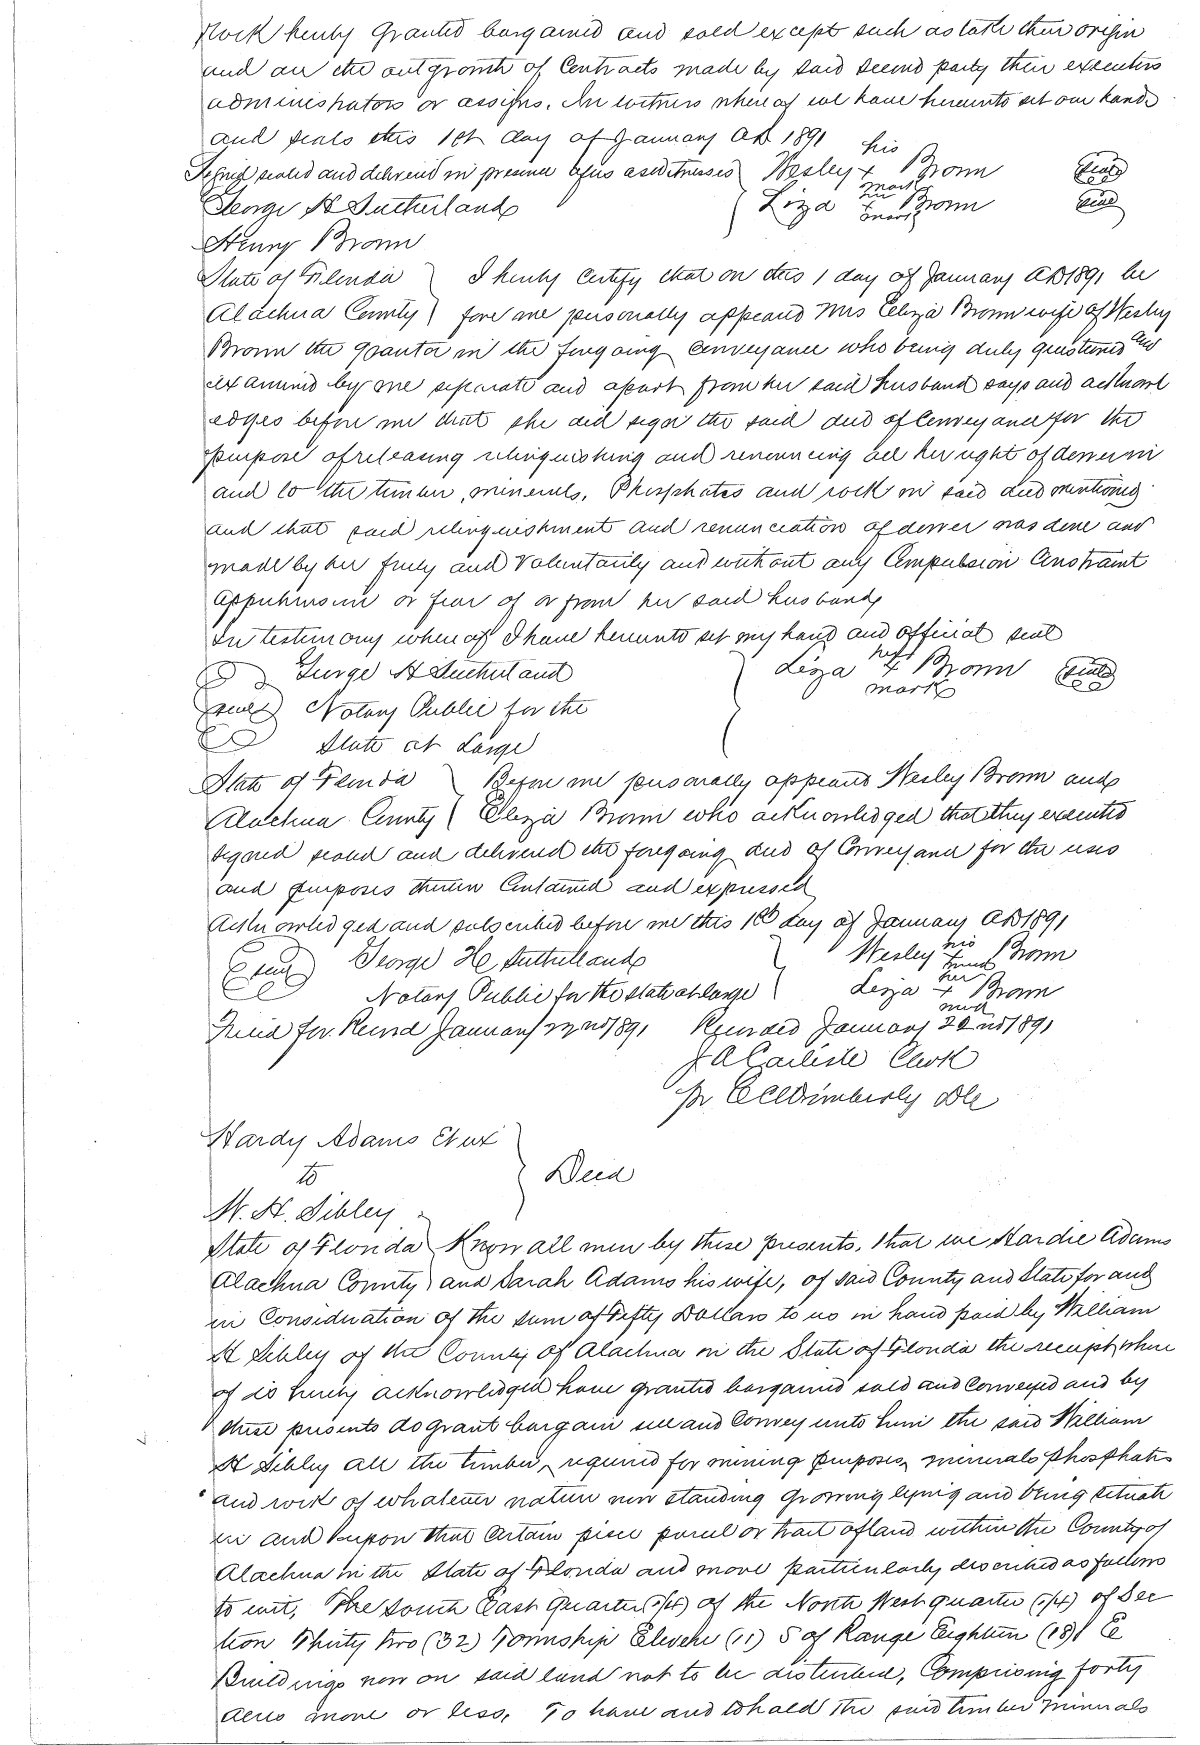 Rock hereby granted bargained and sold except such as take their origin
and are the outgrowth of Contracts made by said second party their executors
administrators or assigns. In witness where of we have hereunto set our hands
and seals this 1st day of January AD 1891
Signed sealed and delivered in presence of us as witnesses } Wesley his x mark Brown (Seal)
George H Sutherland } Liza her x mark Brown (Seal)
Henry Brown
State of Florida } I hereby certify that on this 1 day of January AD 1891 be
Alachua County } fore me personally appeared Mrs Eliza Brown wife of Wesley
Brown the grantor in the foregoing Conveyance who being duly questioned and
examined by me seperate and apart from her said husband says and acknowl
edges before me that she did sign the said deed of Conveyance for the
purpose of releasing relinquishing and renouncing all her right of dower in
and to the timber, minerals, Phosphates and rock in said deed mentioned
and that said relinquishment and renunciation of dower was done and
made by her freely and Voluntarily and without any Compulsion Constraint
Apprehension or fear of or from her said husband
In testimony where of I have hereunto set my hand and official seal
George H Sutherland } Liza her x mark Brown (Seal)
(Seal) Notary Public for the
State at Large
State of Florida } Before me personally appeared Wesley Brown and
Alachua County } Eliza Brown who acknowledged that they executed
signed sealed and delivered the foregoing deed of Conveyance for the uses
and purposes therein Contained and expressed
Acknowledged and subscribed before me this 1st day of January AD 1891
(Seal) George H Sutherland } Wesley his x mark Brown
Notary Public for the state at large } Liza her x mark Brown
Filed for Record January 22nd 1891 Recorded January 22nd 1891
J A Carlisle Clerk
Pr E C Wimberly DC
Hardy Adams Et ux
to } Deed
W. H. Sibley
State of Florida } Know all men by these presents, that we Hardie Adams
Alachua County } and Sarah Adams his wife, of said County and State for and
in Consideration of the sum of Fifty Dollars to us in hand paid by William
H Sibley of the County of Alachua in the State of Florida the receipt where
of is hereby acknowledged have granted bargained sold and Conveyed and by
these presents do grant bargain sell and Convey unto him the said William
H Sibley all the timber, required for mining purposes, minerals phosphates
and rock of whatever nature now standing growing lying and being situate
in and upon that Certain piece parcel or tract of land within the County of
Alachua in the State of Florida and more particularly described as follows
to wit, The South East quarter (1/4) of the North West quarter (1/4) of Sec
tion Thirty two (32) Township Eleven (11) S of Range Eighteen (18) E
Buildings now on said land not to be disturbed, Comprising forty
acres more or less, To have and to hold the said timber minerals